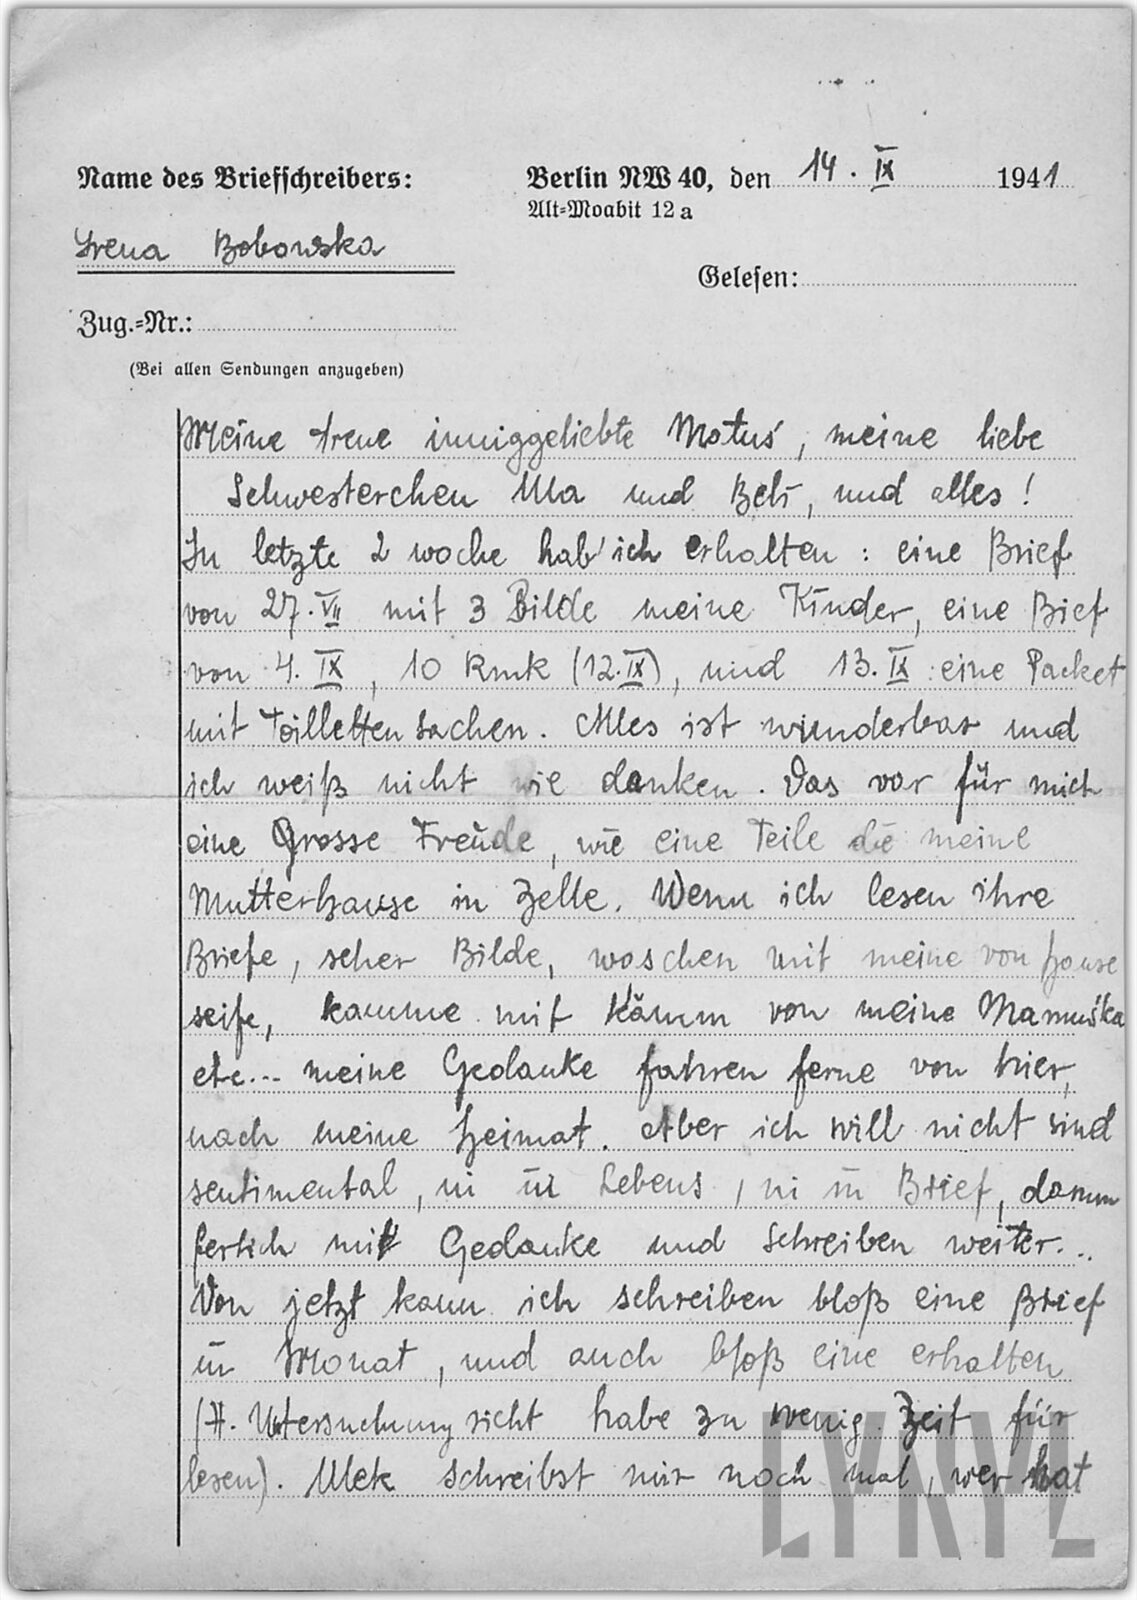 Name des Briefschreibers:
Berlin NW 40, den 14. IX 1941
Alt-Moabit 12 a
Irena Bobowska
Gelesen:
Zug.-Nr.:
(Bei allen Sendungen anzugeben)
Meine treue inniggeliebte Motuś, meine liebe
Schwesterchen Ula und Beti, und alles!
In letzte 2 woche hab' ich erhalten: eine Brief
von 27. VII mit 3 Bilde meine Kinder, eine Brief
von 4. IX, 10 Rmk (12. IX), und 13. IX: eine Packet
mit Toilletten sachen. Alles ist wunderbar und
ich weiß nicht wie danken. Das var für mich
eine Grosse Freude, wie eine Teile die meine
Mutterhause in Zelle. Wenn ich lesen ihre
Briefe, seher Bilde, waschen mit meine von Hause
seife, kamme mit Kämm von meine Mamuśka
etc... meine Gedanke fahren ferne von hier,
nach meine Heimat. Aber ich will nicht sind
sentimental, ni in Lebens, ni in Brief, darum
fertich mit Gedanke und schreiben weiter...
Von jetzt kann ich schreiben bloß eine Brief
in Monat, und auch bloß eine erhalten
(H. Untersuchung richt habe zu wenig Zeit für
lesen). Ulek schreibst mir noch mal, wer hat
CYRYL